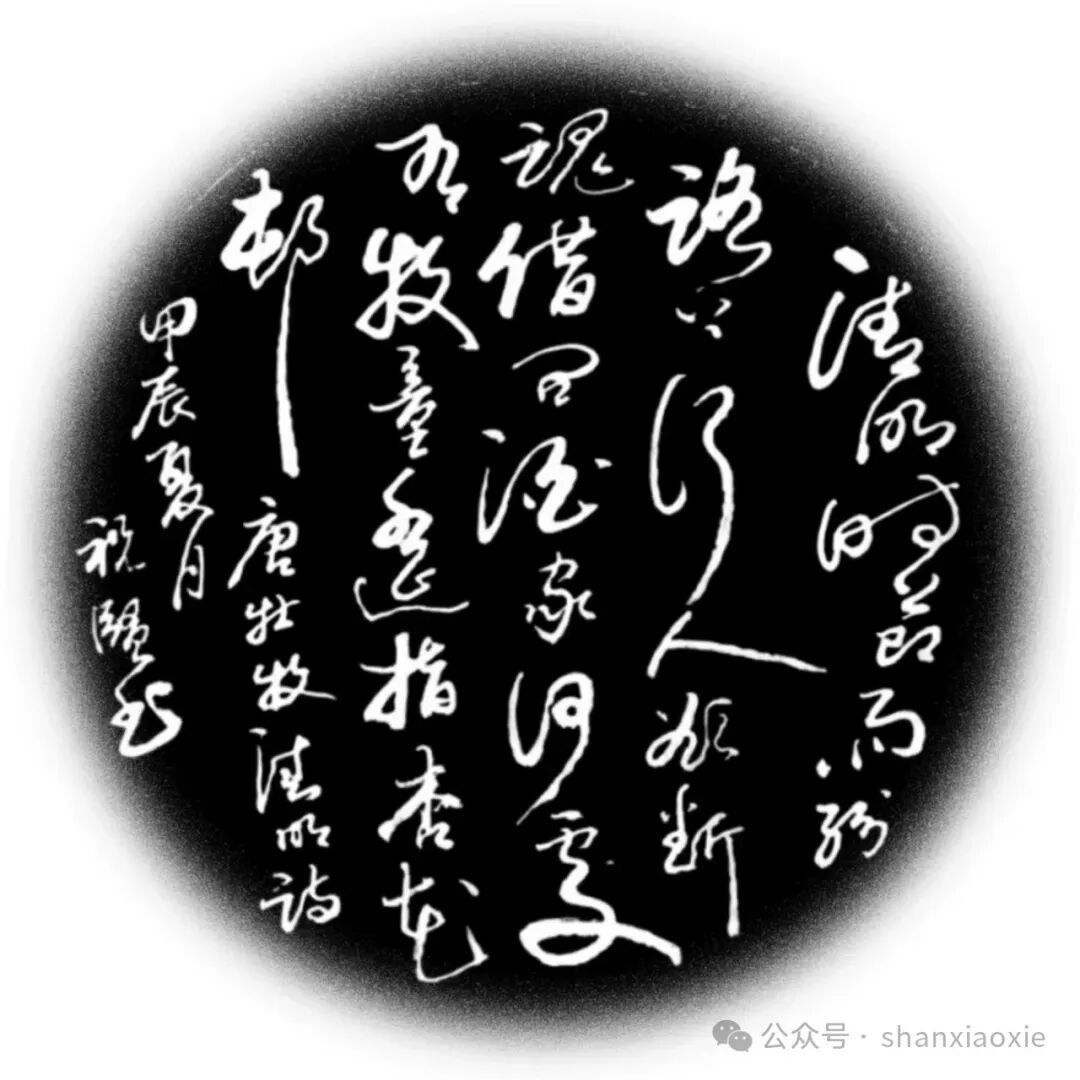 清明时节雨纷
路上行人欲断
魂借问酒家何處
有牧童遥指杏花
村
唐杜牧清明诗
甲辰夏月
祝
公众号·shanxiaoxie